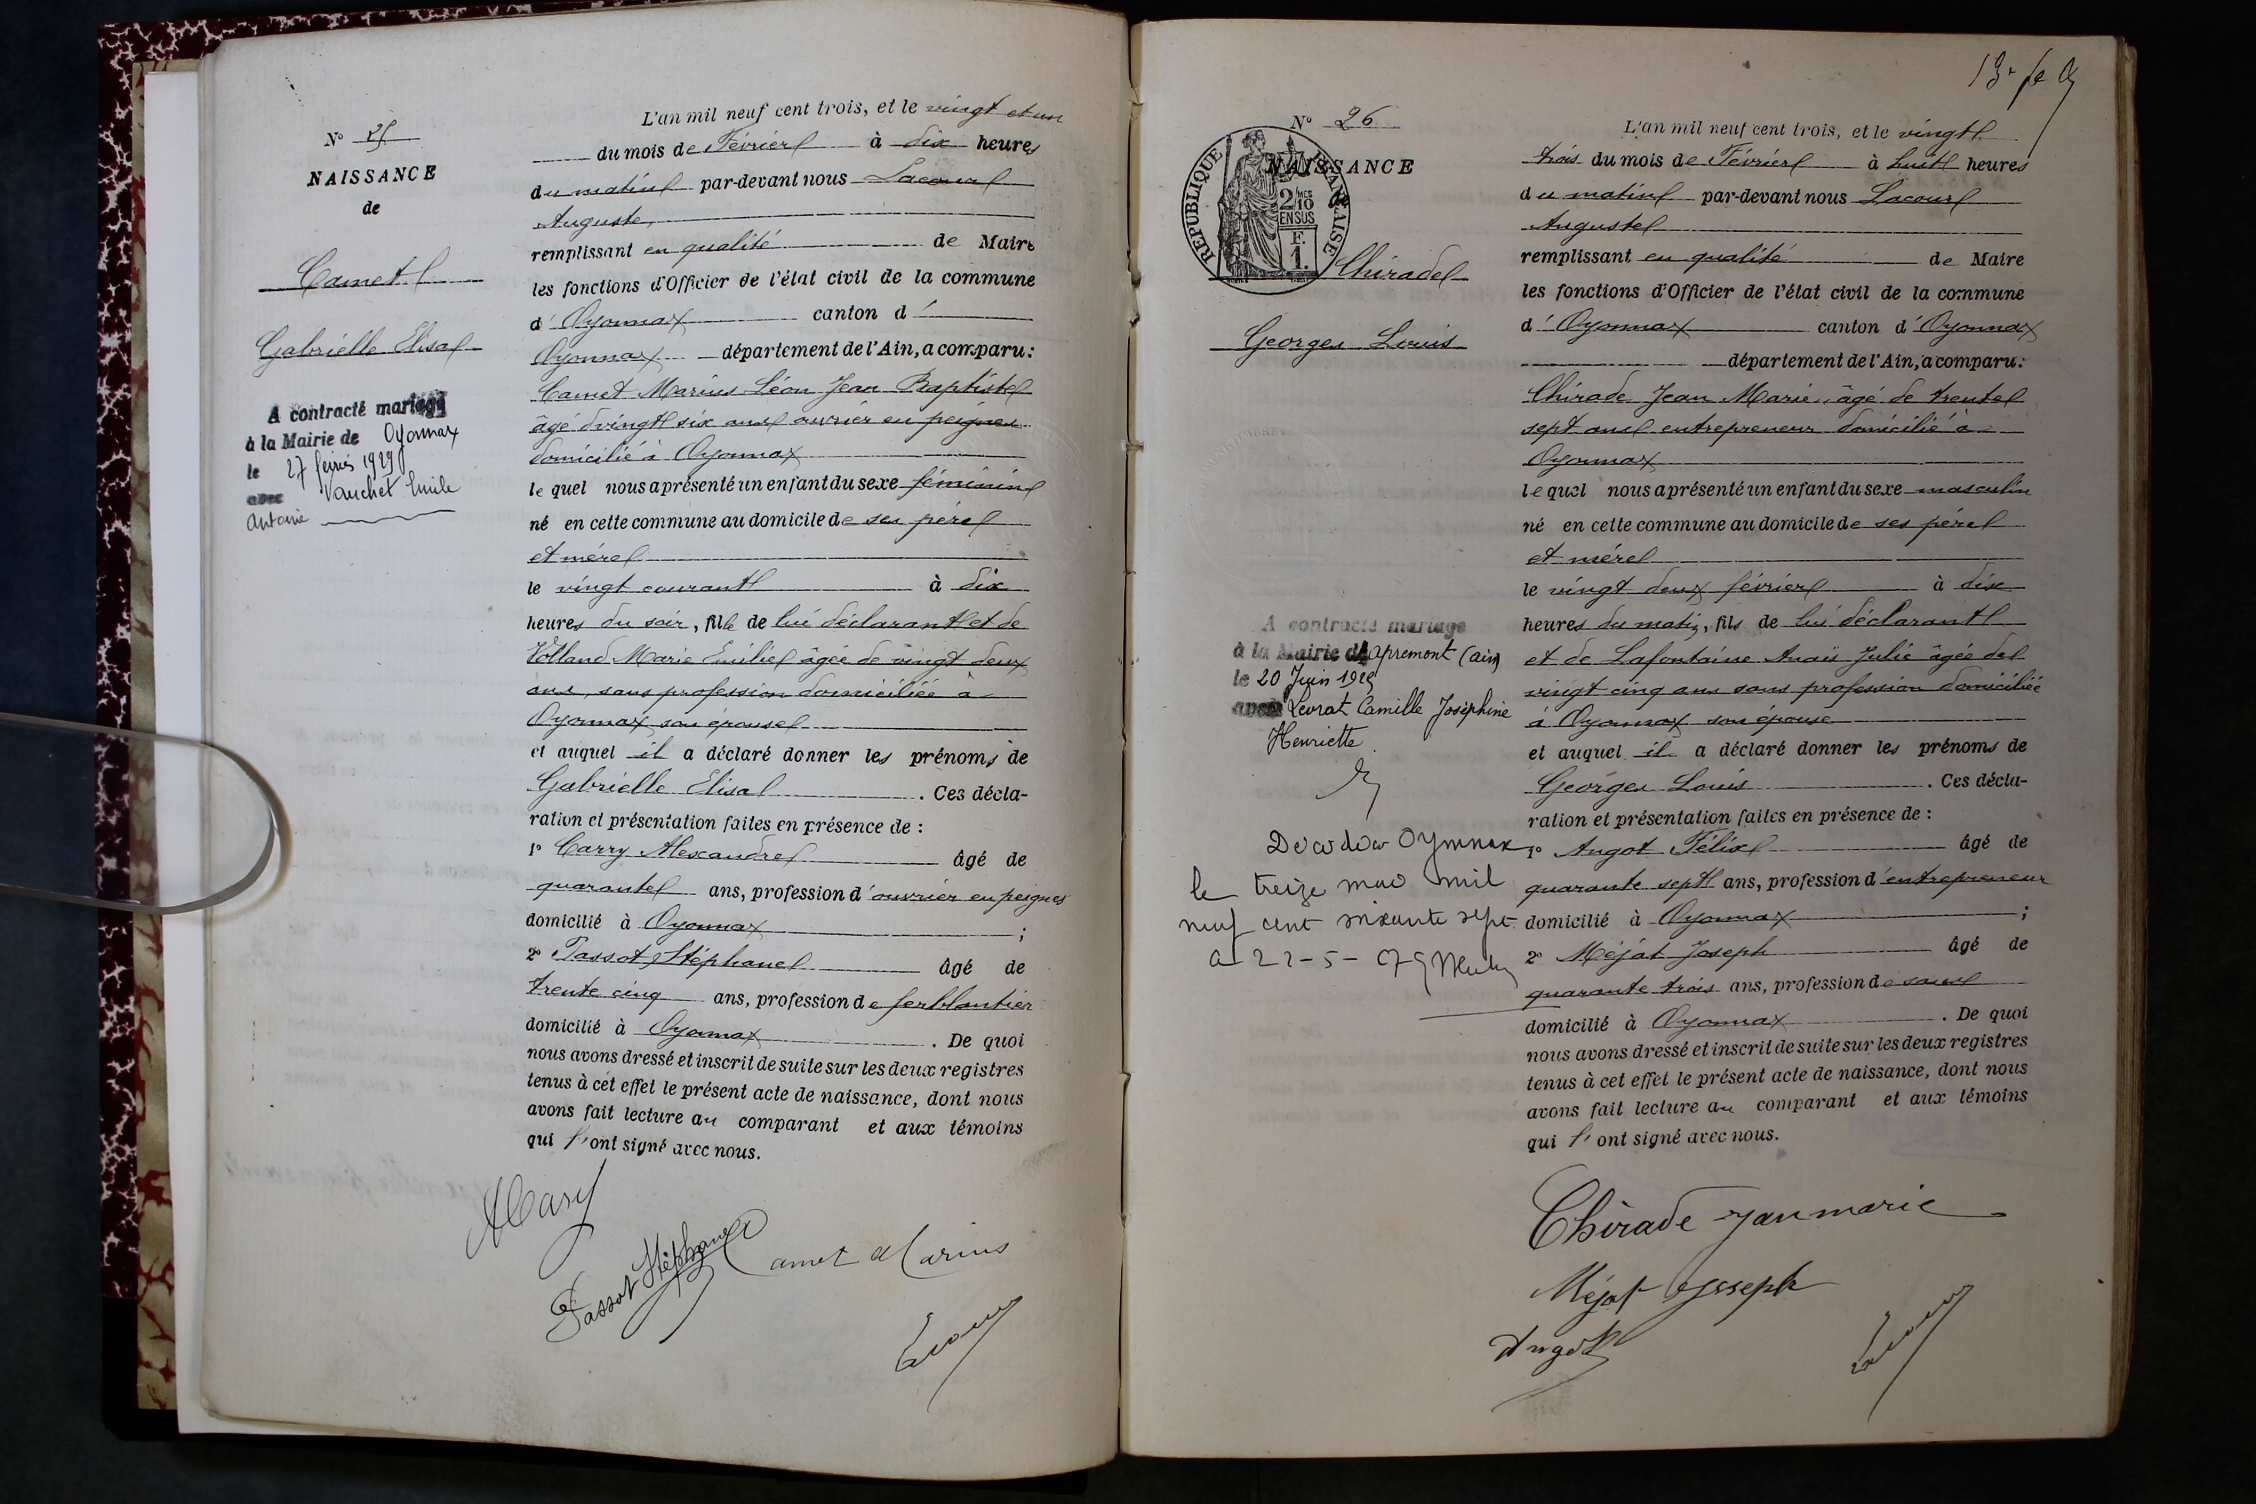 N° 25
NAISSANCE
de
Camet
Gabrielle Elisa
A contracté mariage
à la Mairie de Oyonnax
le 27 février 1929
avec Vauchet Emile
Antoine
L'an mil neuf cent trois, et le vingt et un
du mois de Février à dix heures
du matin par-devant nous Lacour
Auguste,
remplissant en qualité de Maire
les fonctions d'Officier de l'état civil de la commune
d' Oyonnax canton d'
Oyonnax département de l'Ain, a comparu:
Camet Marius Léon Jean Baptiste
âgé d vingt six ans ouvrier en peignes
domicilié à Oyonnax
lequel nous a présenté un enfant du sexe féminin
né en cette commune au domicile de ses père
et mère
le vingt courant à dix
heures du soir, fille de lui déclarant et de
Volland Marie Emilie âgée de vingt deux
ans, sans profession domiciliée à
Oyonnax son épouse
et auquel il a déclaré donner les prénoms de
Gabrielle Elisa . Ces décla-
ration et présentation faites en présence de :
1° Carry Alexandre âgé de
quarante ans, profession d'ouvrier en peignes
domicilié à Oyonnax ;
2° Passot Stéphane âgé de
trente cinq ans, profession de ferblantier
domicilié à Oyonnax . De quoi
nous avons dressé et inscrit de suite sur les deux registres
tenus à cet effet le présent acte de naissance, dont nous
avons fait lecture au comparant et aux témoins
qui l'ont signé avec nous.
ACary
Passot Stéphane
Camet Marius
Lacour
N° 26
NAISSANCE
de
RÉPUBLIQUE FRANÇAISE
2/10 EN SUS
F. 1.
Chirade
Georges Louis
A contracté mariage
à la Mairie d'Apremont (ain)
le 20 Juin 1925
avec Levrat Camille Joséphine
Henriette.
Oyonnax
le treize mai mil
neuf cent soixante sept
L'an mil neuf cent trois, et le vingt
trois du mois de Février à huit heures
du matin par-devant nous Lacour
Auguste
remplissant en qualité de Maire
les fonctions d'Officier de l'état civil de la commune
d' Oyonnax canton d'Oyonnax
département de l'Ain, a comparu:
Chirade Jean Marie, âgé de trente
sept ans entrepreneur domicilié à
Oyonnax
lequel nous a présenté un enfant du sexe masculin
né en cette commune au domicile de ses père
et mère
le vingt deux février à dix
heures du matin, fils de lui déclarant
et de Lafontaine Anaïs Julie âgée de
vingt cinq ans sans profession domiciliée
à Oyonnax son épouse
et auquel il a déclaré donner les prénoms de
Georges Louis . Ces décla-
ration et présentation faites en présence de :
1° Angot Félix âgé de
quarante sept ans, profession d'entrepreneur
domicilié à Oyonnax ;
2° Méjat Joseph âgé de
quarante trois ans, profession de sans
domicilié à Oyonnax . De quoi
nous avons dressé et inscrit de suite sur les deux registres
tenus à cet effet le présent acte de naissance, dont nous
avons fait lecture au comparant et aux témoins
qui l'ont signé avec nous.
Chirade jan marie
Méjat Joseph
Angot
Lacour